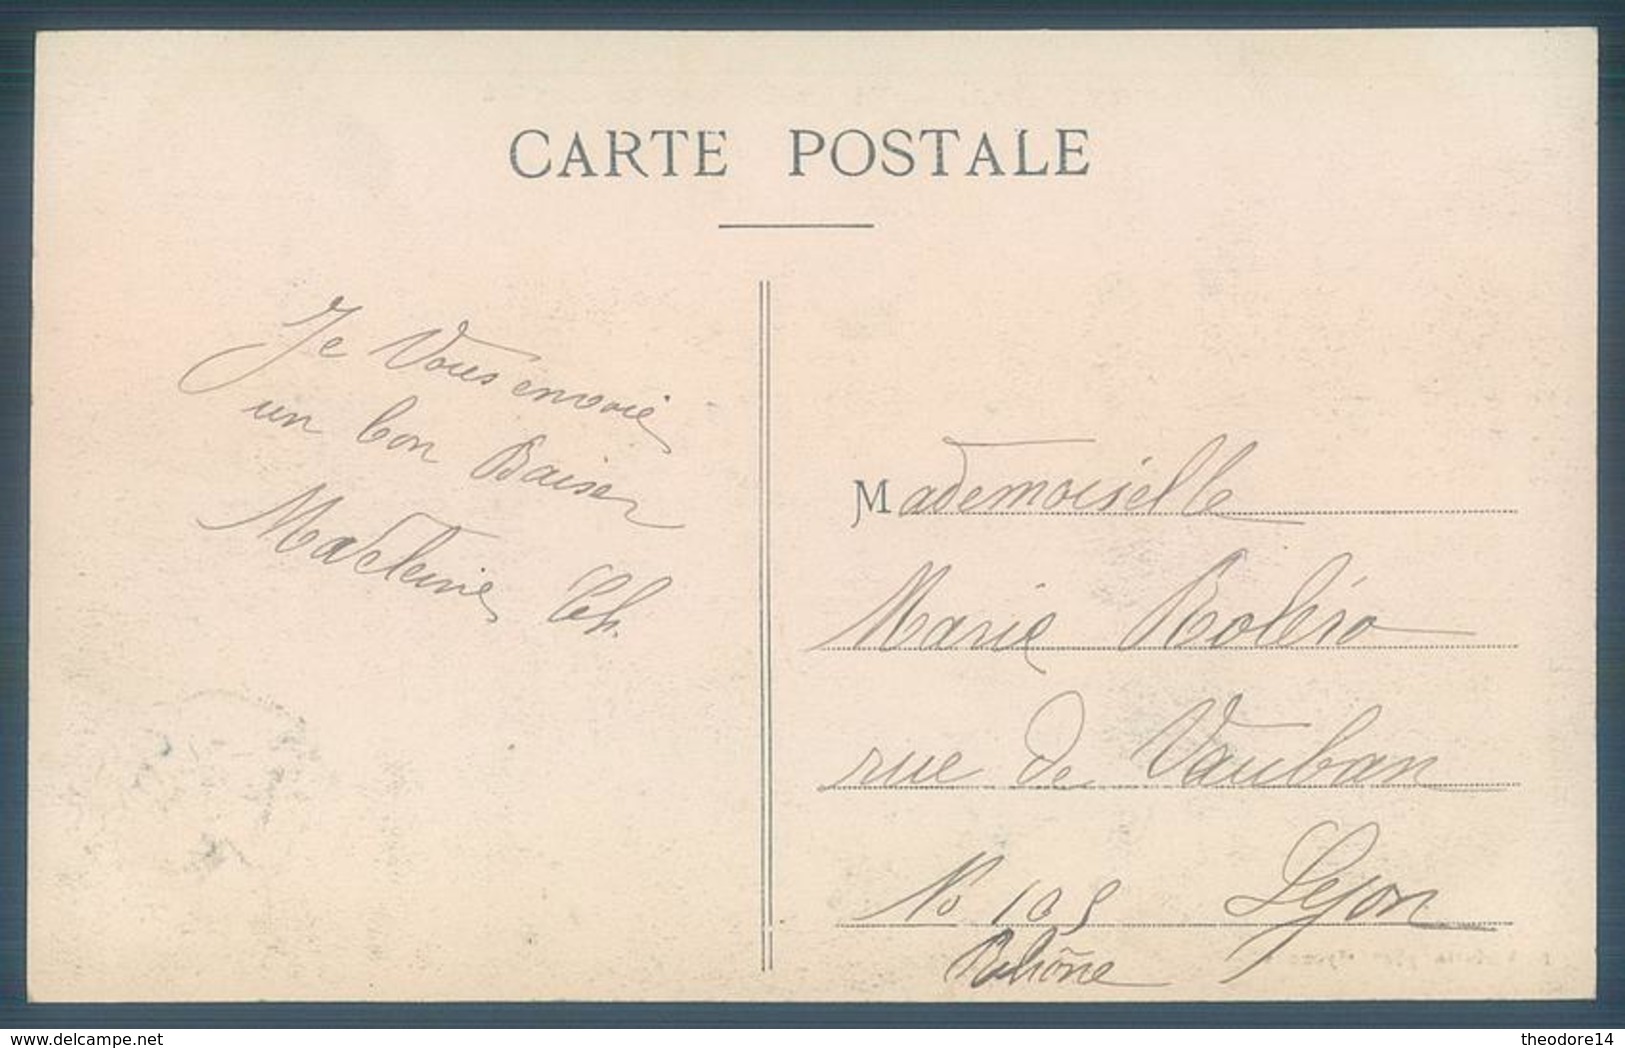 CARTE POSTALE
Je Vous envoie
un bon Baiser
Madeleine Ch.
Mademoiselle
Marie
rue de Vauban
No 105 Lyon
Rhône
www.delcampe.net
theodore14